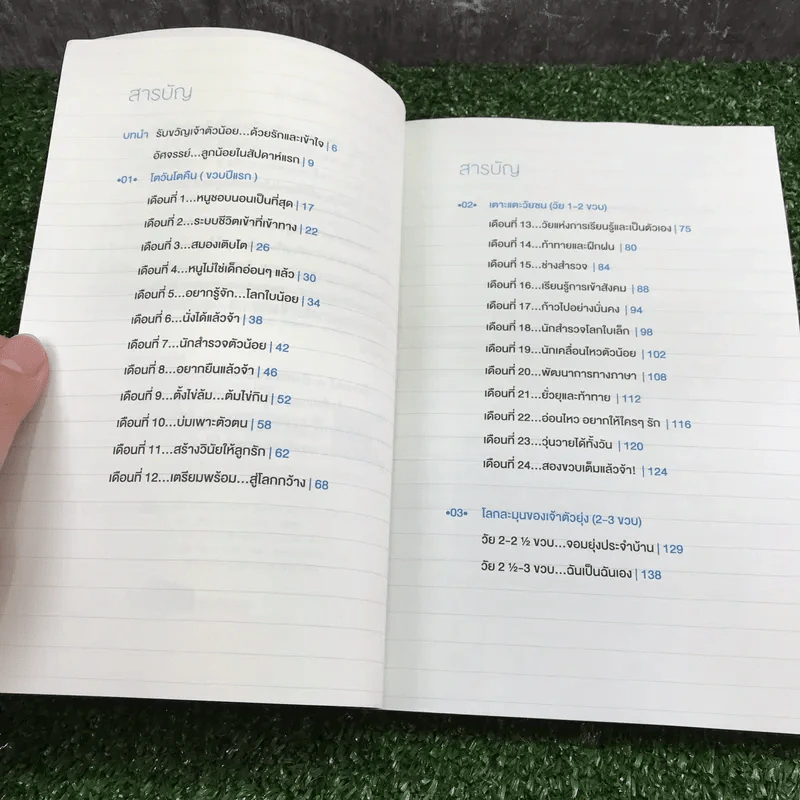 สารบัญ
บทนำ รับขวัญเจ้าตัวน้อย...ด้วยรักและเข้าใจ | 6
อัศจรรย์...ลูกน้อยในสัปดาห์แรก | 9
•01• โตวันโตคืน ( ขวบปีแรก )
เดือนที่ 1...หนูชอบนอนเป็นที่สุด | 17
เดือนที่ 2...ระบบชีวิตเข้าที่เข้าทาง | 22
เดือนที่ 3...สมองเติบโต | 26
เดือนที่ 4...หนูไม่ใช่เด็กอ่อนๆ แล้ว | 30
เดือนที่ 5...อยากรู้จัก...โลกใบน้อย | 34
เดือนที่ 6...นั่งได้แล้วจ้า | 38
เดือนที่ 7...นักสำรวจตัวน้อย | 42
เดือนที่ 8...อยากยืนแล้วจ้า | 46
เดือนที่ 9...ตั้งไข่ล้ม...ต้มไข่กิน | 52
เดือนที่ 10...บ่มเพาะตัวตน | 58
เดือนที่ 11...สร้างวินัยให้ลูกรัก | 62
เดือนที่ 12...เตรียมพร้อม...สู่โลกกว้าง | 68
สารบัญ
•02• เตาะแตะวัยซน (วัย 1-2 ขวบ)
เดือนที่ 13...วัยแห่งการเรียนรู้และเป็นตัวเอง | 75
เดือนที่ 14...ท้าทายและฝึกฝน | 80
เดือนที่ 15...ช่างสำรวจ | 84
เดือนที่ 16...เรียนรู้การเข้าสังคม | 88
เดือนที่ 17...ก้าวไปอย่างมั่นคง | 94
เดือนที่ 18...นักสำรวจโลกใบเล็ก | 98
เดือนที่ 19...นักเคลื่อนไหวตัวน้อย | 102
เดือนที่ 20...พัฒนาการทางภาษา | 108
เดือนที่ 21...ยั่วยุและท้าทาย | 112
เดือนที่ 22...อ่อนไหว อยากให้ใครๆ รัก | 116
เดือนที่ 23...วุ่นวายได้ทั้งวัน | 120
เดือนที่ 24...สองขวบเต็มแล้วจ้า! | 124
•03• โลกละมุนของเจ้าตัวยุ่ง (2-3 ขวบ)
วัย 2-2 ½ ขวบ...จอมยุ่งประจำบ้าน | 129
วัย 2 ½-3 ขวบ...ฉันเป็นฉันเอง | 138